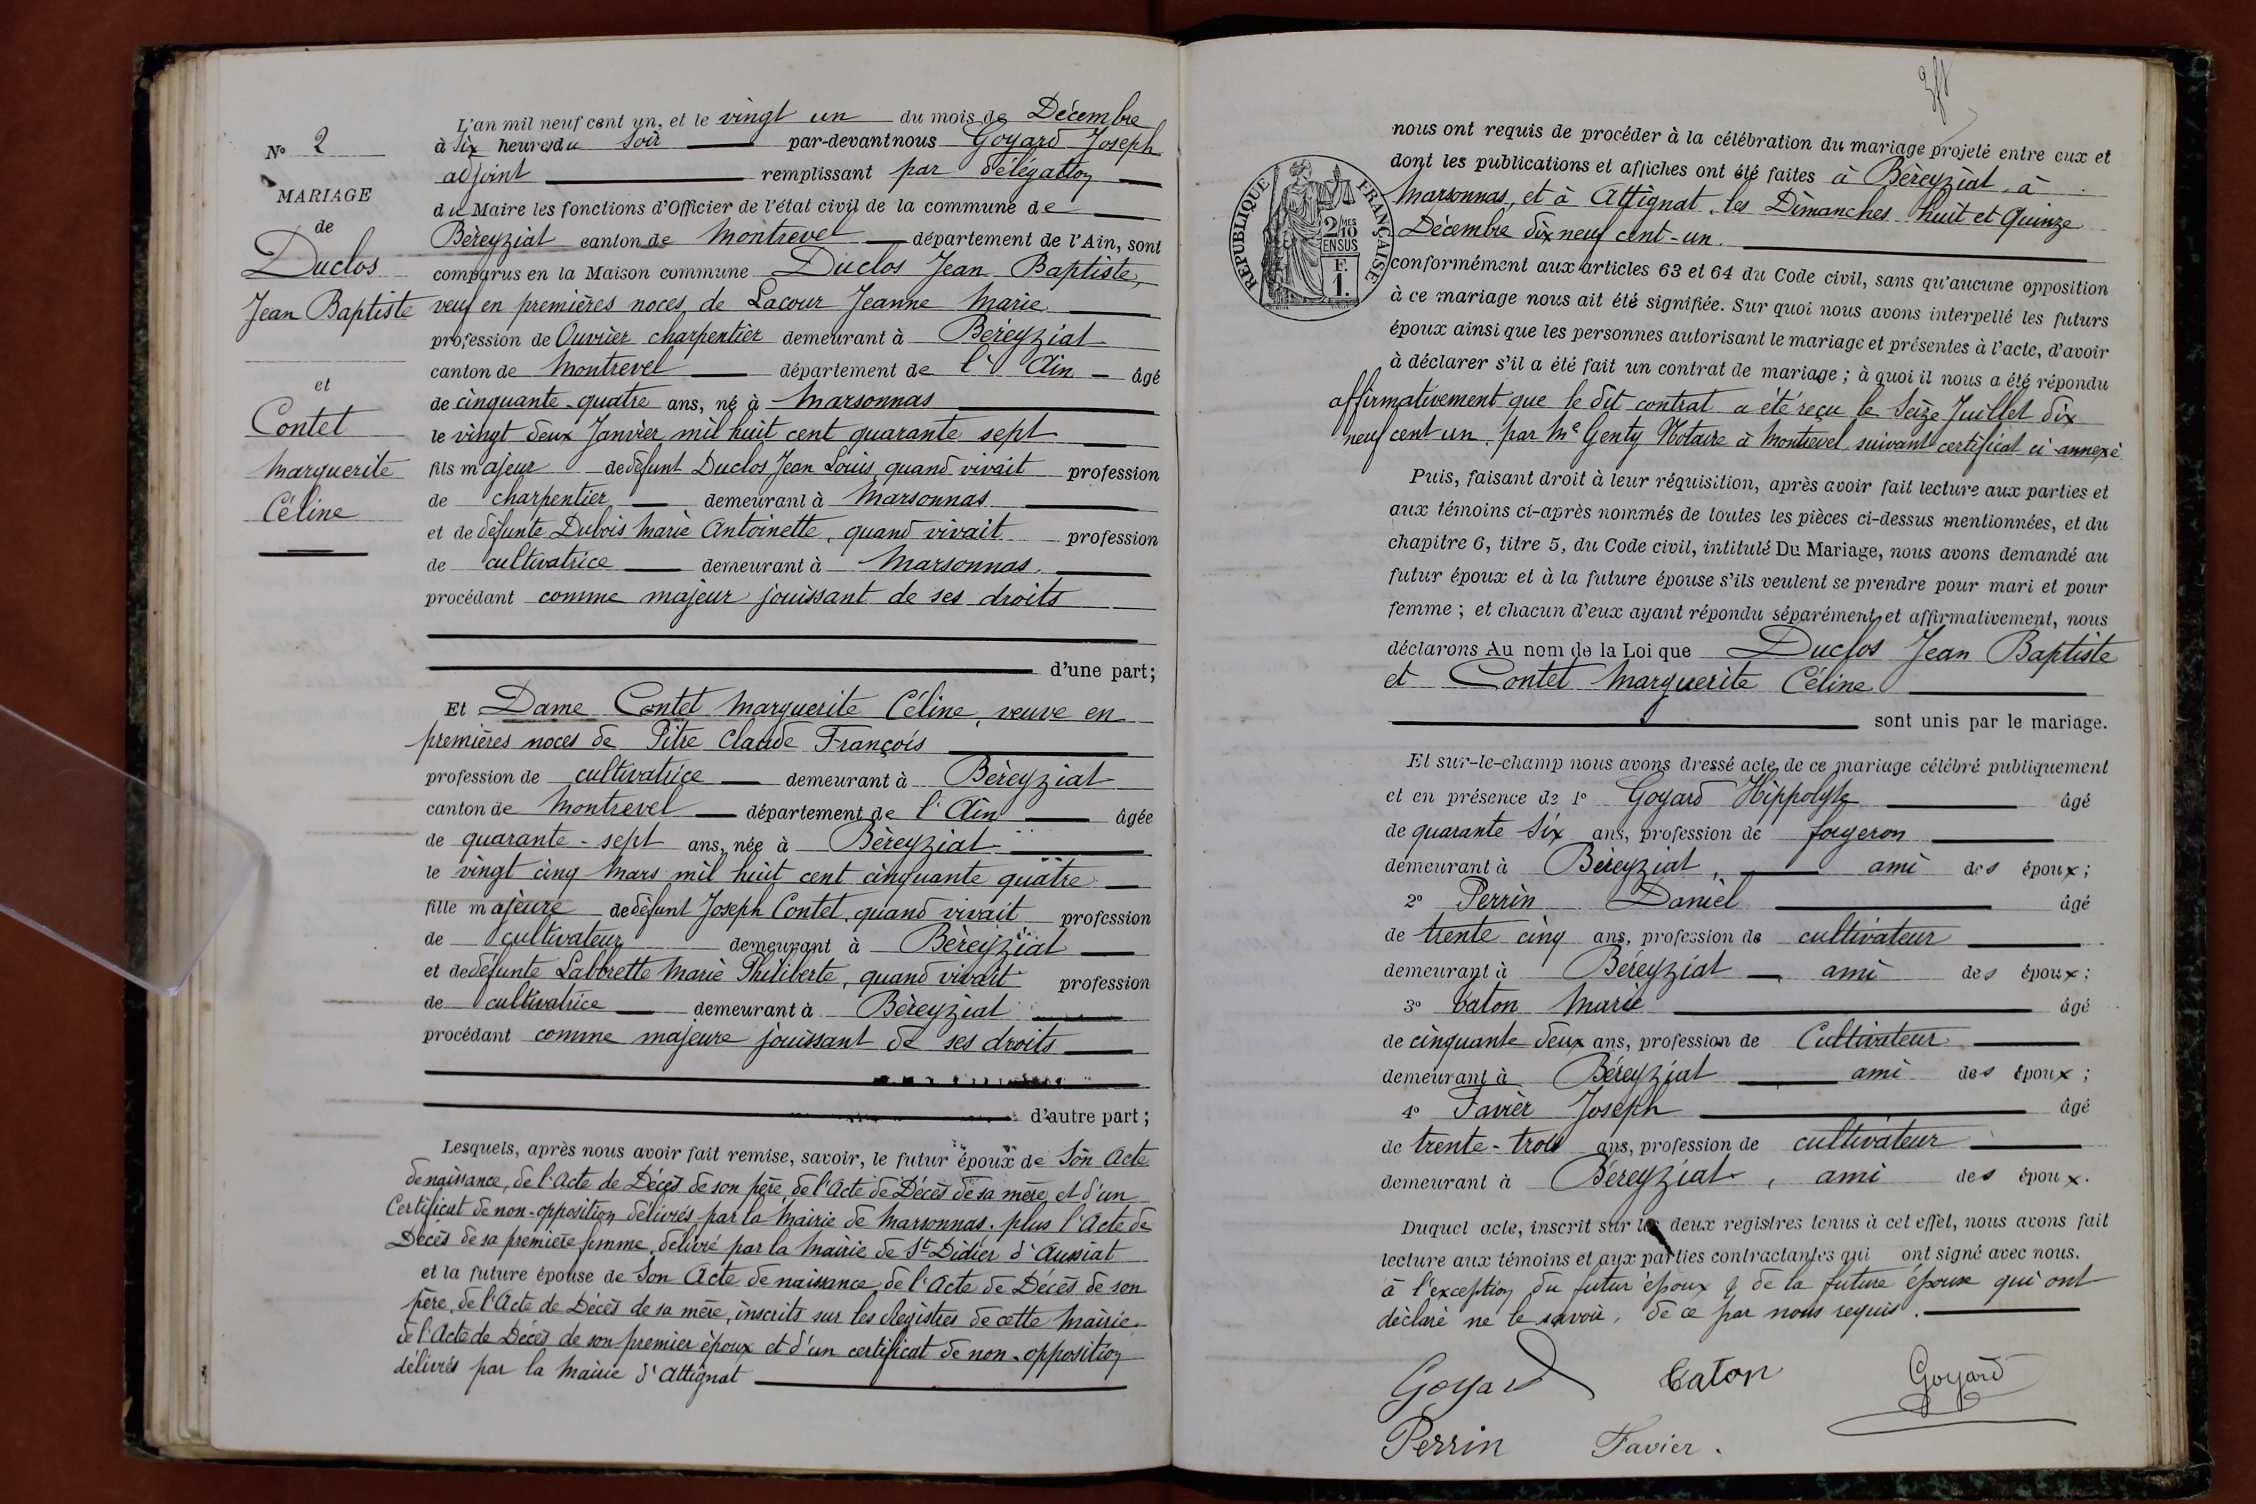 N° 2
MARIAGE
de
Duclos
Jean Baptiste
et
Contet
Marguerite
Céline
L'an mil neuf cent un, et le vingt un du mois de Décembre
à Six heures du Soir par-devant nous Goyard Joseph
adjoint remplissant par délégation
du Maire les fonctions d'Officier de l'état civil de la commune de
Béreyziat canton de Montrevel département de l'Ain, sont
comparus en la Maison commune Duclos Jean Baptiste,
veuf en premières noces de Lacour Jeanne Marie
profession de Ouvrier charpentier demeurant à Béreyziat
canton de Montrevel département de l'Ain âgé
de cinquante-quatre ans, né à Marsonnas
le vingt deux Janvier mil huit cent quarante sept
fils majeur de défunt Duclos Jean Louis, quand vivait profession
de charpentier demeurant à Marsonnas
et de défunte Dubois Marie Antoinette, quand vivait profession
de cultivatrice demeurant à Marsonnas.
procédant comme majeur jouissant de ses droits
d'une part;
Et Dame Contet Marguerite Céline, veuve en
premières noces de Pitre Claude François
profession de cultivatrice demeurant à Béreyziat
canton de Montrevel département de l'Ain âgée
de quarante-sept ans, née à Béreyziat
le vingt cinq Mars mil huit cent cinquante quatre
fille majeure de défunt Joseph Contet, quand vivait profession
de cultivateur demeurant à Béreyziat
et de défunte Labbrette Marie Philiberte, quand vivait profession
de cultivatrice demeurant à Béreyziat
procédant comme majeure jouissant de ses droits
d'autre part;
Lesquels, après nous avoir fait remise, savoir, le futur époux de Son Acte
de naissance, de l'Acte de Décès de son père, de l'Acte de Décès de sa mère et d'un
Certificat de non-opposition délivrés par la Mairie de Marsonnas. plus l'Acte de
Décès de sa première femme, délivré par la Mairie de St Didier d'Aussiat
et la future épouse de Son Acte de naissance, de l'Acte de Décès de son
père, de l'Acte de Décès de sa mère, inscrits sur les Régistres de cette Mairie.
de l'Acte de Décès de son premier époux et d'un certificat de non-opposition
délivrés par la Mairie d'Attignat
RÉPUBLIQUE FRANÇAISE
2/10 MES
EN SUS
F.
1.
nous ont requis de procéder à la célébration du mariage projeté entre eux et
dont les publications et affiches ont été faites à Béreyziat, à
Marsonnas, et à Attignat, les Dimanches huit et Quinze
Décembre dix neuf cent-un.
conformément aux articles 63 et 64 du Code civil, sans qu'aucune opposition
à ce mariage nous ait été signifiée. Sur quoi nous avons interpellé les futurs
époux ainsi que les personnes autorisant le mariage et présentes à l'acte, d'avoir
à déclarer s'il a été fait un contrat de mariage; à quoi il nous a été répondu
affirmativement que le dit contrat a été reçu le Seize Juillet dix
neuf cent un, par Me Genty Notaire à Montrevel, suivant certificat ci-annexé
Puis, faisant droit à leur réquisition, après avoir fait lecture aux parties et
aux témoins ci-après nommés de toutes les pièces ci-dessus mentionnées, et du
chapitre 6, titre 5, du Code civil, intitulé Du Mariage, nous avons demandé au
futur époux et à la future épouse s'ils veulent se prendre pour mari et pour
femme; et chacun d'eux ayant répondu séparément et affirmativement, nous
déclarons Au nom de la Loi que Duclos Jean Baptiste
et Contet Marguerite Céline
sont unis par le mariage.
Et sur-le-champ nous avons dressé acte de ce mariage célébré publiquement
et en présence de 1° Goyard Hippolyte âgé
de quarante Six ans, profession de forgeron
demeurant à Béreyziat, ami des époux;
2° Perrin Daniel âgé
de trente cinq ans, profession de cultivateur
demeurant à Béreyziat, ami des époux;
3° Caton Marie âgé
de cinquante deux ans, profession de Cultivateur
demeurant à Béreyziat ami des époux;
4° Favier Joseph âgé
de trente-trois ans, profession de cultivateur
demeurant à Béreyziat, ami des époux.
Duquel acte, inscrit sur les deux registres tenus à cet effet, nous avons fait
lecture aux témoins et aux parties contractantes qui ont signé avec nous.
à l'exception du futur époux & de la future épouse qui ont
déclaré ne le savoir, de ce par nous requis.
Goyard Caton Goyard
Perrin Favier.